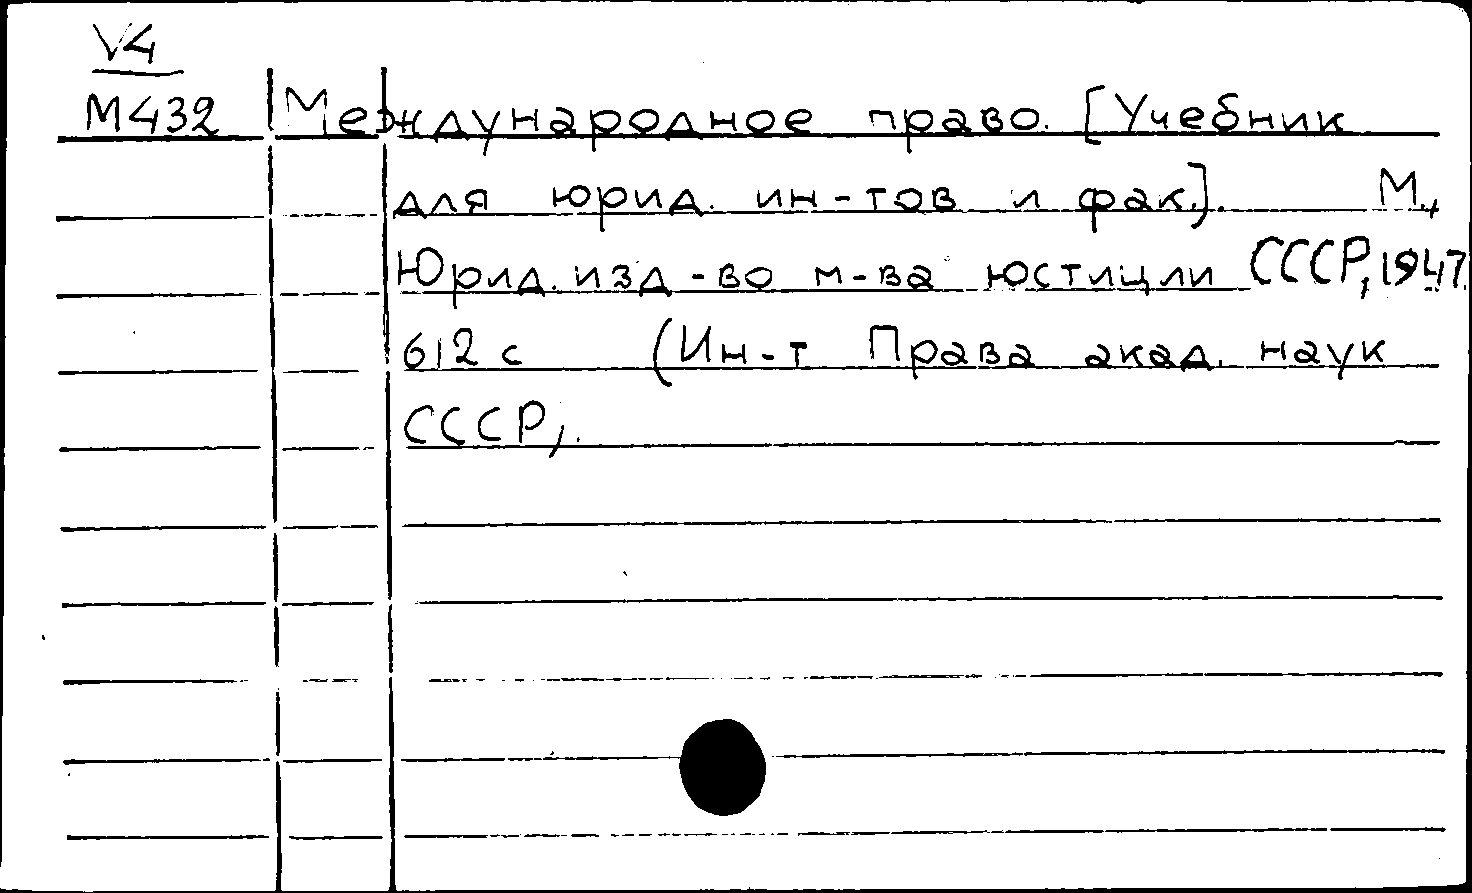 V4
М432 Международное право. [Учебник
для юрид. ин-тов и фак.]. М.,
Юрид. изд-во м-ва юстиции СССР, 1947.
612 с (Ин-т Права акад. наук
СССР).